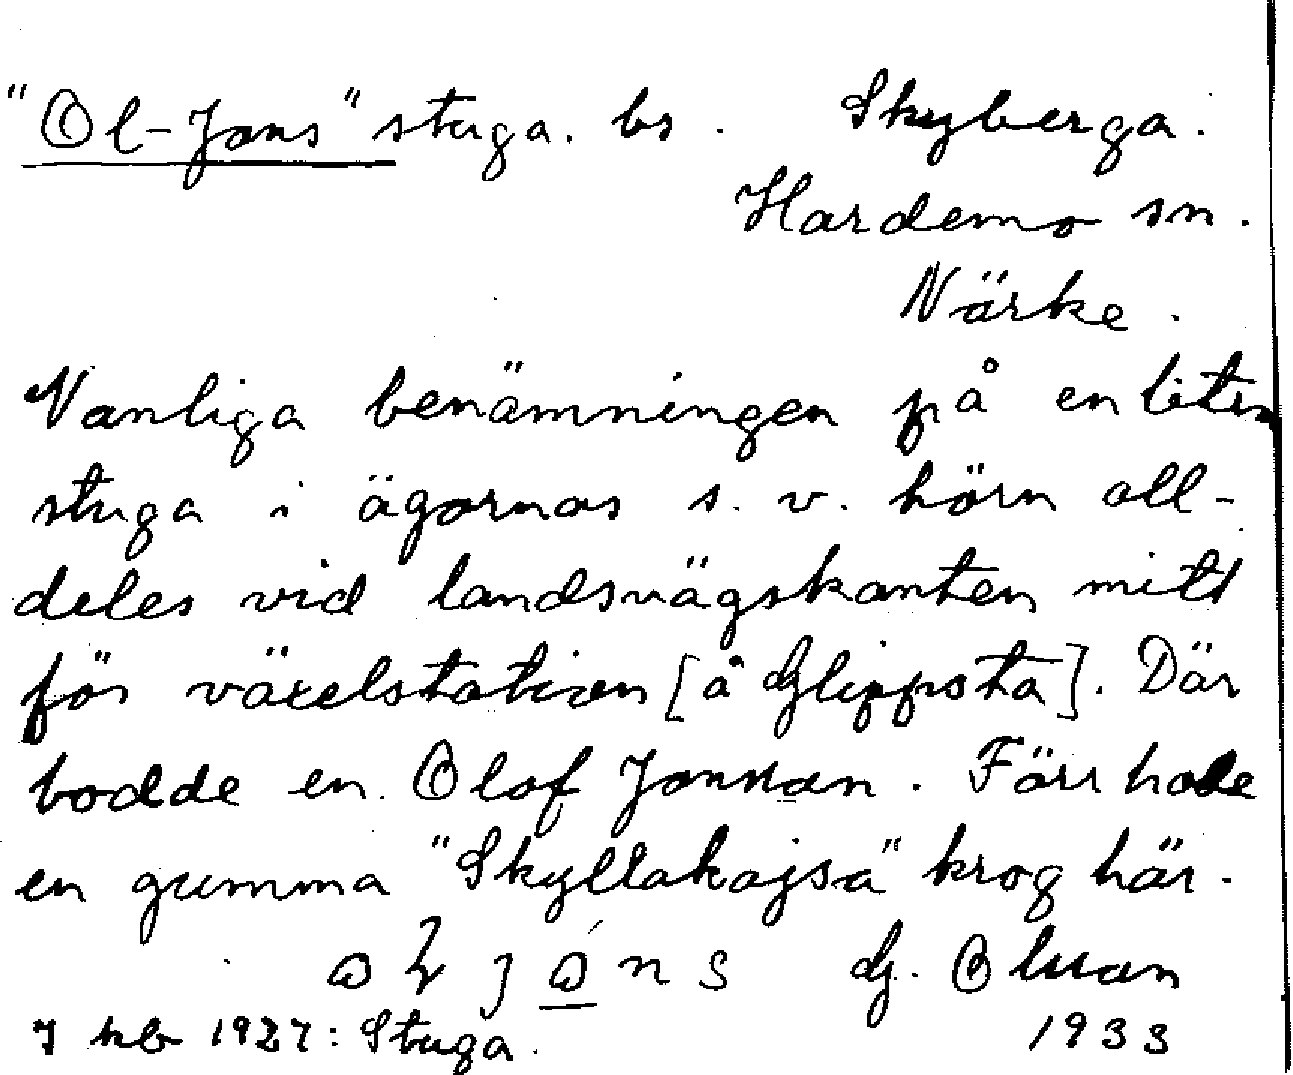 "Ol-Jans" stuga. bs. Skyberga.
Hardemo sn.
Närke.
Vanliga benämningen på en liten
stuga i ägornas s.v. hörn all-
deles vid landsvägskanten mitt
för växelstation [å Glippsta]. Där
bodde en Olof Jonsson. Förr hade
en gumma "Skyllakajsa" krog här.
G. Olsson
J kb 1927: Stuga. 1933